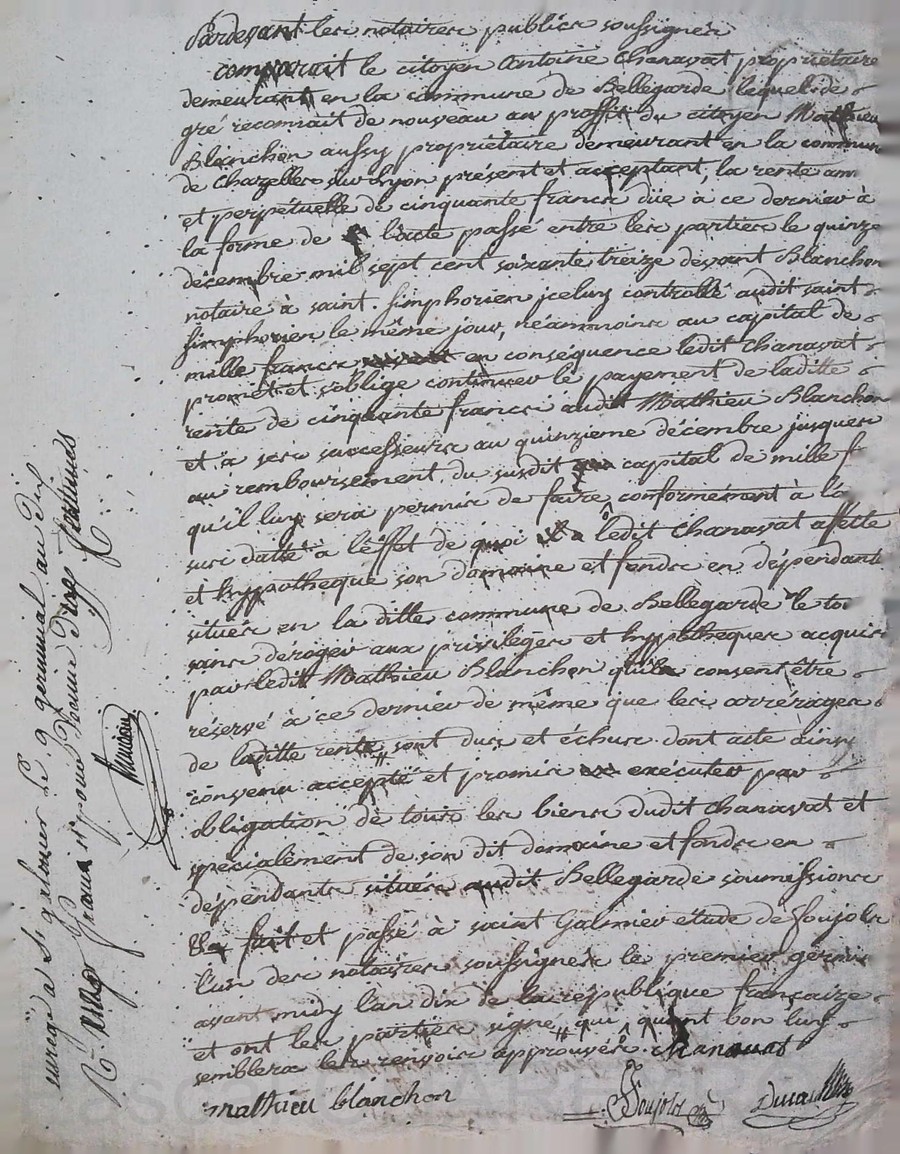 Pardevant les notaires publics soussignés
comparait le citoyen Antoine Chanavat propriétaire
demeurant en la commune de Bellegarde lequel de
gré reconnait de nouveau au proffit du citoyen Mathieu
Blanchon aussy propriétaire demeurant en la commun
de Chazelles sur Lyon présent et acceptant, la rente ann
et perpétuelle de cinquante francs düe à ce dernier à
la forme de l'acte passé entre les parties le quinze
décembre mil sept cent soixante treize devant Blanchon
notaire à saint. simphorien jceluy controllé audit saint
simphorien le même jour, néammoins au capital de
mille francs en conséquence ledit Chanavat
promet et s'oblige continuer le payement de laditte
rente de cinquante francs audit Mathieu Blanchon
et à ses successeurs au quinzieme décembre jusques
au remboursement du susdit capital de mille f
qu'il luy sera permis de faire conformément à la
susdatté à l'éffet de quoi ledit Chanavat affette
et hyppotheque son domaine et fonds en dépendants
situés en la ditte commune de Bellegarde le to
sans déroger aux privilèges et hyppotheques acquis
par ledit Mathieu Blanchon consent être
réservé à ce dernier de même que les arrérages
de laditte rente sont dus et échus dont acte ainsy
convenu accepté et promis exécuter par
obligation de tous les biens dudit Chanavat et
spécialement de son dit domaine et fonds en
dépendants situés audit Bellegarde soumissions
fait et passé à saint Galmier etude de Soujols
l'un des notaires soussignés le premier germin
avant midy l'an dix de la république françaize
et ont les parties signé qui quant bon luy
semblera les renvois approuvés. chanavat
mathieu blanchon
Soujols
enregé a St galmier le 9 germinal an Dix
francs pour Decime Dix Centimes